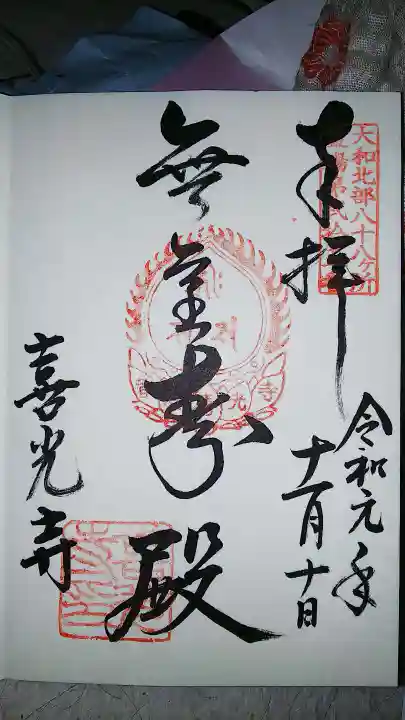 奉拝
大和北部八十八ヶ所
霊場第弐
令和元年
十一月十日
無量寿殿
喜光寺